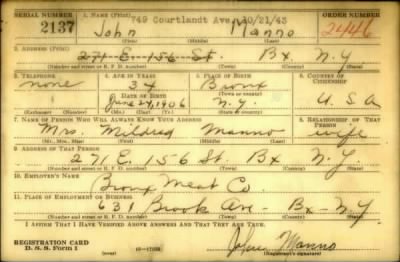 SERIAL NUMBER 1. NAME (Print) 749 Courtlandt Ave. 10/21/43 ORDER NUMBER
2137 John Manno 2446
(First) (Middle) (Last)
2. ADDRESS (Print)
271 E. 156 St. Bx N.Y
(Number and street or R. F. D. number) (Town) (County) (State)
3. TELEPHONE 4. AGE IN YEARS 5. PLACE OF BIRTH 6. COUNTRY OF CITIZENSHIP
none 34 Bronx
DATE OF BIRTH (Town or county)
June 24, 1906 N.Y. U.S.A
(Exchange) (Number) (Mo.) (Day) (Yr.) (State or country)
7. NAME OF PERSON WHO WILL ALWAYS KNOW YOUR ADDRESS 8. RELATIONSHIP OF THAT PERSON
Mrs. Mildred Manno wife
(Mr., Mrs., Miss) (First) (Middle) (Last)
9. ADDRESS OF THAT PERSON
271 E. 156 St. Bx N.Y.
(Number and street or R. F. D. number) (Town) (County) (State)
10. EMPLOYER'S NAME
Bronx Meat Co
11. PLACE OF EMPLOYMENT OR BUSINESS
631 Brook Ave - Bx - N.Y
(Number and street or R. F. D. number) (Town) (County) (State)
I AFFIRM THAT I HAVE VERIFIED ABOVE ANSWERS AND THAT THEY ARE TRUE.
REGISTRATION CARD John Manno
D. S. S. Form 1 (over) (Registrant's signature)